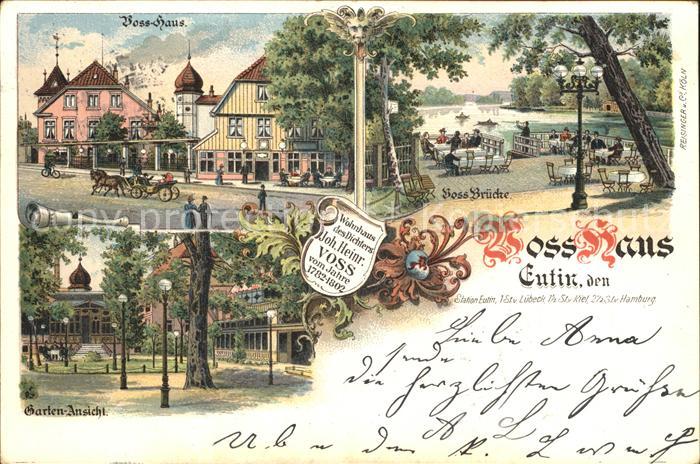 Voss-Haus.
Voss Brücke.
REISINGER u. Co. KÖLN
Wohnhaus
des Dichters
Joh. Heinr.
VOSS
vom Jahre
1782-1802
Voss Haus
Eutin, den
Station Eutin, 1 St. v. Lübeck, 1¼ St. v. Kiel, 2¼ St. v. Hamburg.
Garten-Ansicht.
Liebe Anna
sende
die herzlichsten Grüße